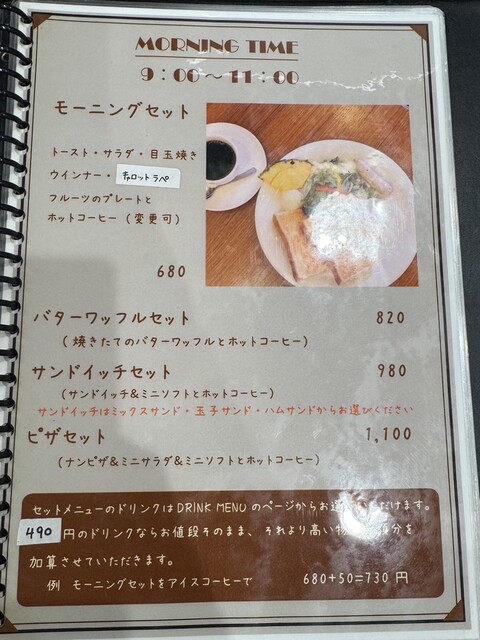 MORNING TIME
9:00～11:00
モーニングセット
トースト・サラダ・目玉焼き
ウインナー・キャロットラペ
フルーツのプレートと
ホットコーヒー（変更可）
680
バターワッフルセット 820
（焼きたてのバターワッフルとホットコーヒー）
サンドイッチセット 980
（サンドイッチ&ミニソフトとホットコーヒー）
サンドイッチはミックスサンド・玉子サンド・ハムサンドからお選びください
ピザセット 1,100
（ナンピザ&ミニサラダ&ミニソフトとホットコーヒー）
セットメニューのドリンクはDRINK MENUのページからお選びいただけます。
490円のドリンクならお値段そのまま、それより高い物は 額分を
加算させていただきます。
例 モーニングセットをアイスコーヒーで 680+50=730 円